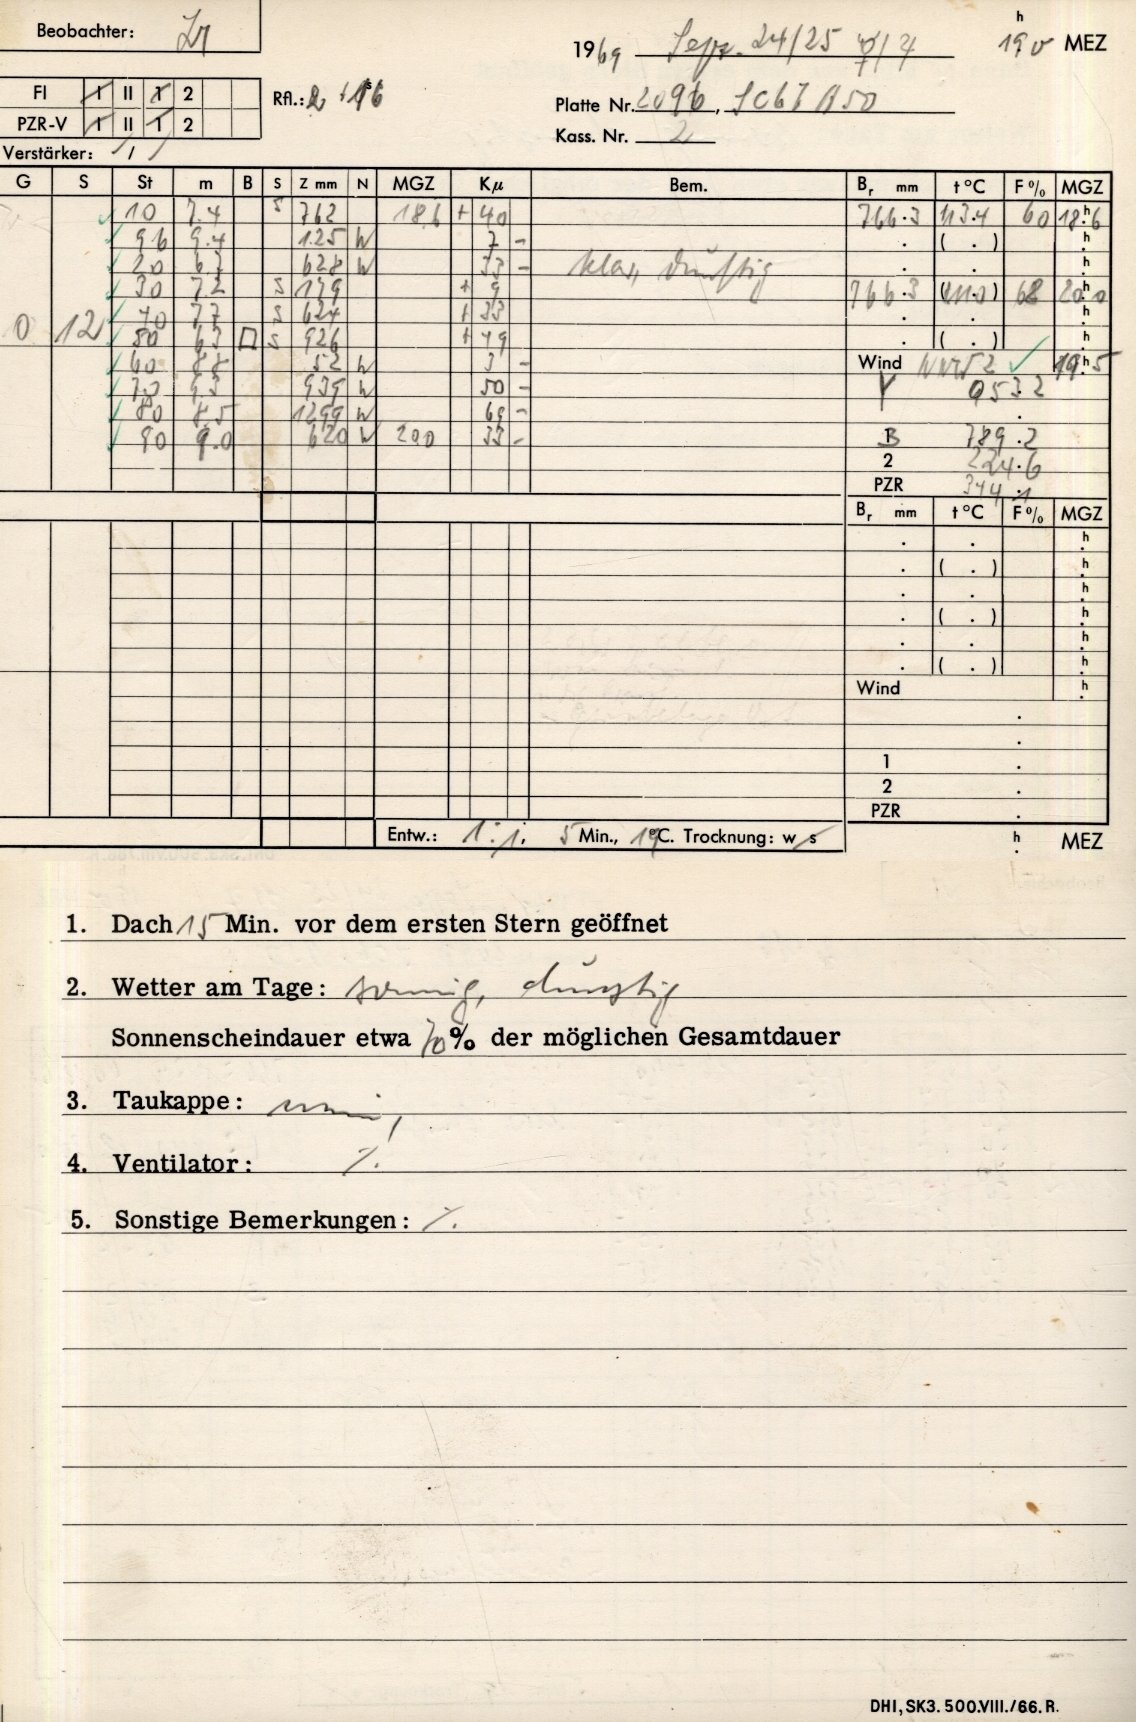 Beobachter:
1969 Sept. 24/25 19 h 0 MEZ
FI I II 1 2
Rfl.: 2
Platte Nr. 2096, SC67 B50
PZR-V I II 1 2
Kass. Nr. 2
Verstärker: /
G S St m B S Z mm N MGZ Kμ Bem. Br mm t °C F % MGZ
10 7.4 S 762 18.6 + 40 766.3 13.4 60 18 h 6
96 9.4 125 W 7 - ( . ) h
20 6.7 628 W 33 - klar, dunstig . . h
30 7.2 S 179 + 9 766.3 (11.0) 68 20 h 0
40 7.7 S 624 + 33 . . h
0 12 50 6.3 S 926 + 49 . ( . ) h
60 8.8 52 W 3 - Wind NNW 2 19 h 5
70 9.3 939 W 50 - 953 2
80 8.5 1299 W 69 - .
90 9.0 620 W 200 33 - 789.2
2 224.6
PZR 344.1
Br mm t °C F % MGZ
. . h
. ( . ) h
. . h
. ( . ) h
. . h
. ( . ) h
Wind h
.
.
1 .
2 .
PZR .
Entw.: 1:1, 5 Min., 19°C. Trocknung: w/s h . MEZ
1. Dach 15 Min. vor dem ersten Stern geöffnet
2. Wetter am Tage: sonnig, dunstig
Sonnenscheindauer etwa 70% der möglichen Gesamtdauer
3. Taukappe:
4. Ventilator: /.
5. Sonstige Bemerkungen: /.
DHI, SK3. 500.VIII./66. R.